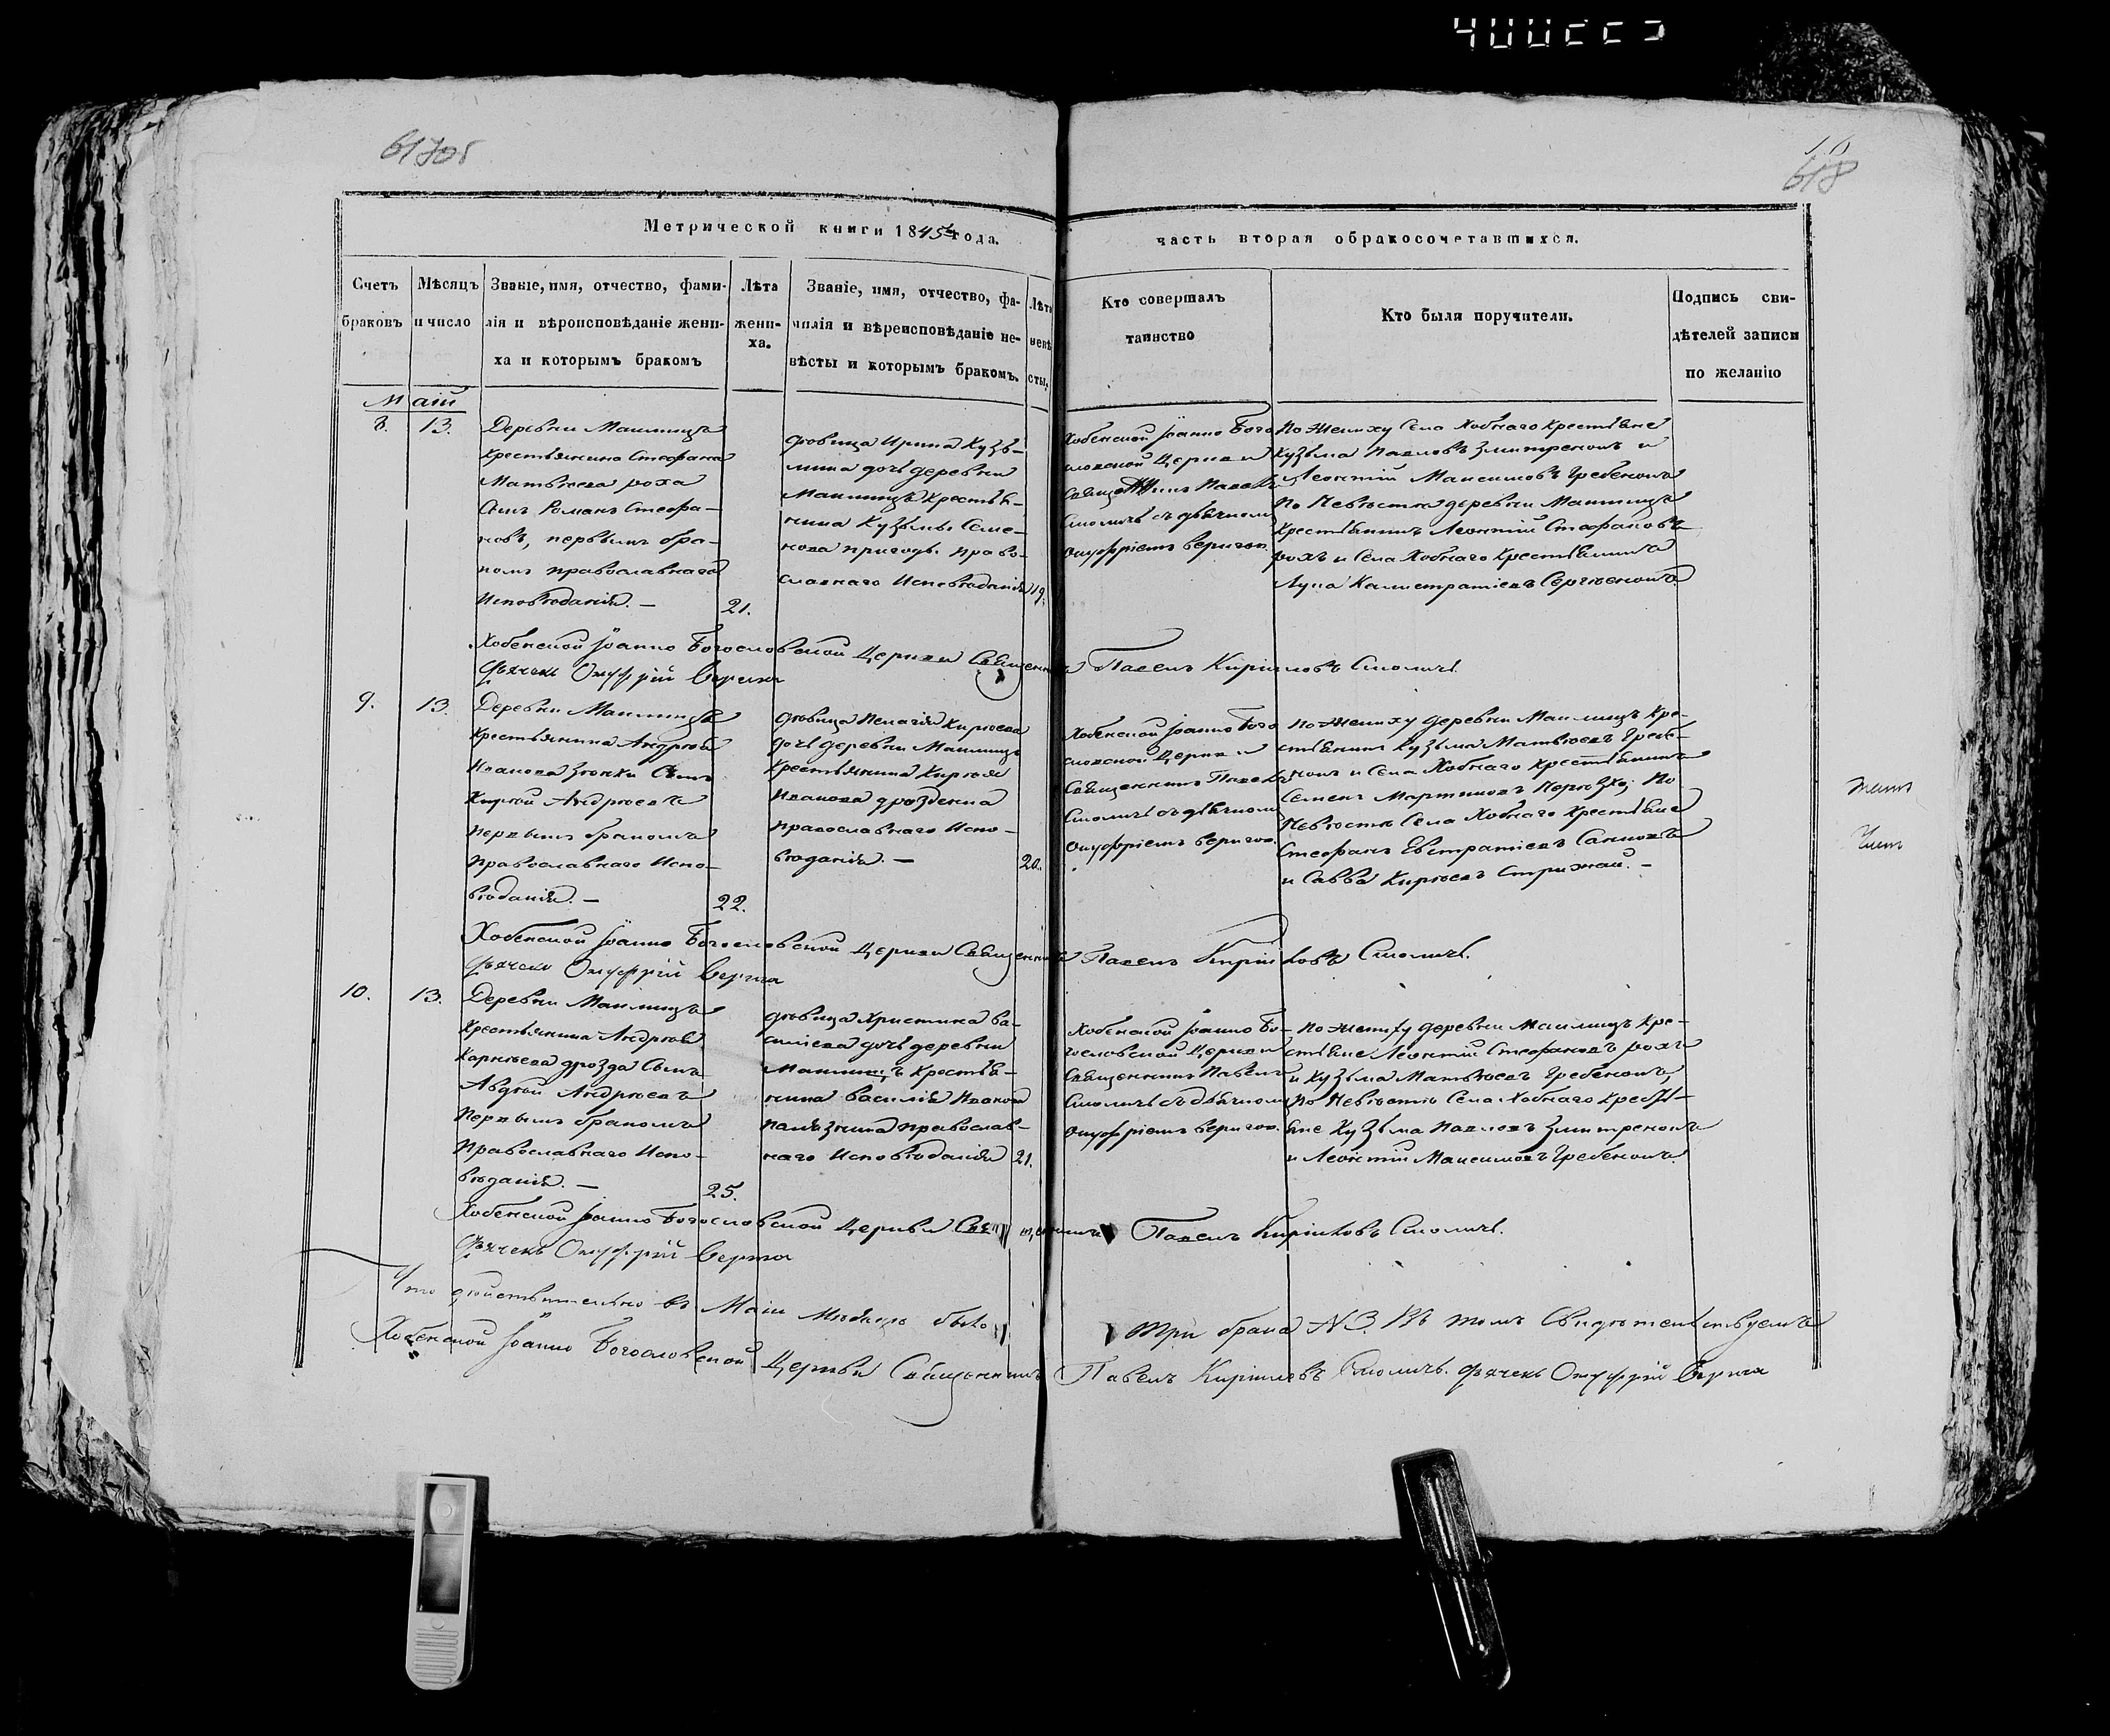 618
Метрической книги 1845 года.
часть вторая обракосочетавшихся.
Счетъ браковъ
Мѣсяцъ и число
Званіе, имя, отчество, фами-
лія и вѣроисповѣданіе жени-
ха и которымъ бракомъ
Лѣта жени-
ха.
Званіе, имя, отчество, фа-
милія и вѣроисповѣданіе не-
вѣсты и которымъ бракомъ.
Лѣта
невѣ
сты.
Кто совершалъ
таинство
Кто были поручители.
Подпись сви-
дѣтелей записи
по желанію
Маій
8.
13.
Деревни
крестьянина Стефана
Матвѣева роха
Сынъ Романъ Стефа-
новъ, первымъ бра-
комъ православнаго
Исповѣданія. —
21.
дѣвица Ирина Кузь-
мина дочь деревни
крестья-
нина Кузьмы Семе-
нова право-
славнаго Исповѣданія
19.
Хобенской Іоанно Бого
словской Церкви
Священникъ Павелъ
Смоличъ съ дьячкомъ
Онуфріемъ Веригою.
По Жениху Села Хобнаго Крестьяне
Кузьма Павловъ Змитренокъ и
Леонтій Максимовъ Гребенокъ
По Невѣсте деревни
Крестьянинъ Леонтій Стефановъ
рохъ и Села Хобнаго Крестьянинъ
Лука Калистратіевъ Сергѣенокъ
Хобенской Іоанно Богословской Церкви Священникъ Павелъ Кириловъ Смоличъ.
Дьячекъ Онуфрій Верига
9.
13.
Деревни
Крестьянина Андрея
Иванова зюжки Сынъ
Кирей Андреевъ
первымъ бракомъ
православнаго Испо-
вѣданія. —
22.
дѣвица Пелагія Кирѣева
дочь деревни
Крестьянина Кирея
Иванова дрозденка
православнаго Испо-
вѣданія. —
20.
Хобенской Іоанно Бого
словской Церкви
Священникъ Павелъ
Смоличъ съ дьячкомъ
Онуфріемъ Веригою.
По Жениху деревни Кре-
стьянинъ Кузьма Матвѣевъ Гребе-
нокъ и Села Хобнаго Крестьянинъ
Семенъ Мартиновъ По
Невѣсте Села Хобнаго Крестьяне
Стефанъ Евстратіевъ
и Савва Кирѣевъ Стрижай. —
Хобенской Іоанно Богословской Церкви Священникъ Павелъ Кириловъ Смоличъ.
Дьячекъ Онуфрій Верига
10.
13.
Деревни
Крестьянина Андрея
Карнѣева дрозда Сынъ
Авдей Андреевъ
Первымъ бракомъ
Православнаго Испо-
вѣданія. —
25.
дѣвица Христина Ва-
силіева дочь деревни
Крестья-
нина Василія Иванова
православ-
наго Исповѣданія
21.
Хобенской Іоанно Бо-
гословской Церкви
Священникъ Павелъ
Смоличъ съ дьячкомъ
Онуфріемъ Веригою.
По Жениху деревни Кре-
стьяне Леонтій Стефановъ рохъ
и Кузьма Матвѣевъ Гребенокъ,
По Невѣсте Села Хобнаго Кресть-
яне Кузьма Павловъ Змитренокъ
и Леонтій Максимовъ Гребенокъ.
Хобенской Іоанно Богословской Церкви Священникъ Павелъ Кириловъ Смоличъ.
Дьячекъ Онуфрій Верига
Что дѣйствительно въ Маіи Мѣсяцѣ было три брака №3. Въ томъ Свидѣтельствуемъ
Хобенской Іоанно Богословской Церкви Священникъ Павелъ Кириловъ Смоличъ. Дьячекъ Онуфрій Верига